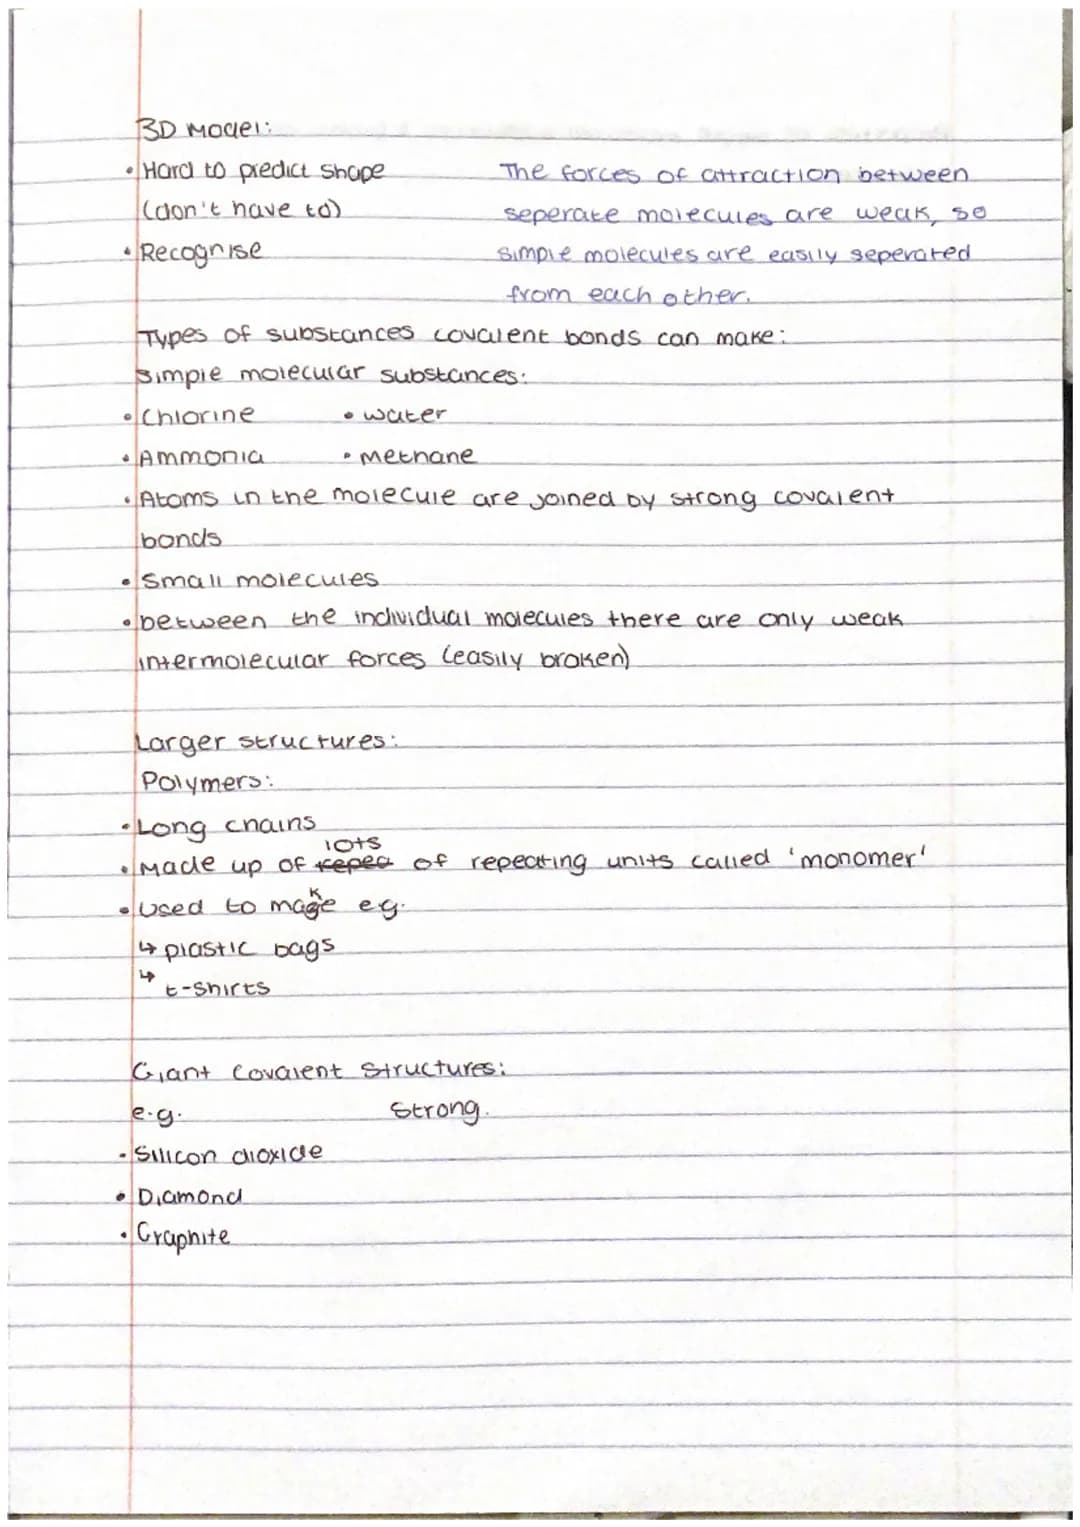 3D Model:
• Hard to predict shape
(don't have to)
• Recognise
The forces of attraction between
seperate molecules are weak, so
simple molecules are easily seperated
from each other.
Types of substances covalent bonds can make:
Simple molecular substances:
• Chlorine • water
• Ammonia • methane
• Atoms in the molecule are joined by strong covalent
bonds
• Small molecules
• between the individual molecules there are only weak
intermolecular forces (easily broken)
Larger structures:
Polymers:
• Long chains
lots
• Made up of repea of repeating units called 'monomer'
• Used to make eg.
↳ plastic bags
↳ t-shirts
Giant Covalent Structures:
e.g. Strong.
• Silicon dioxide
• Diamond
• Graphite